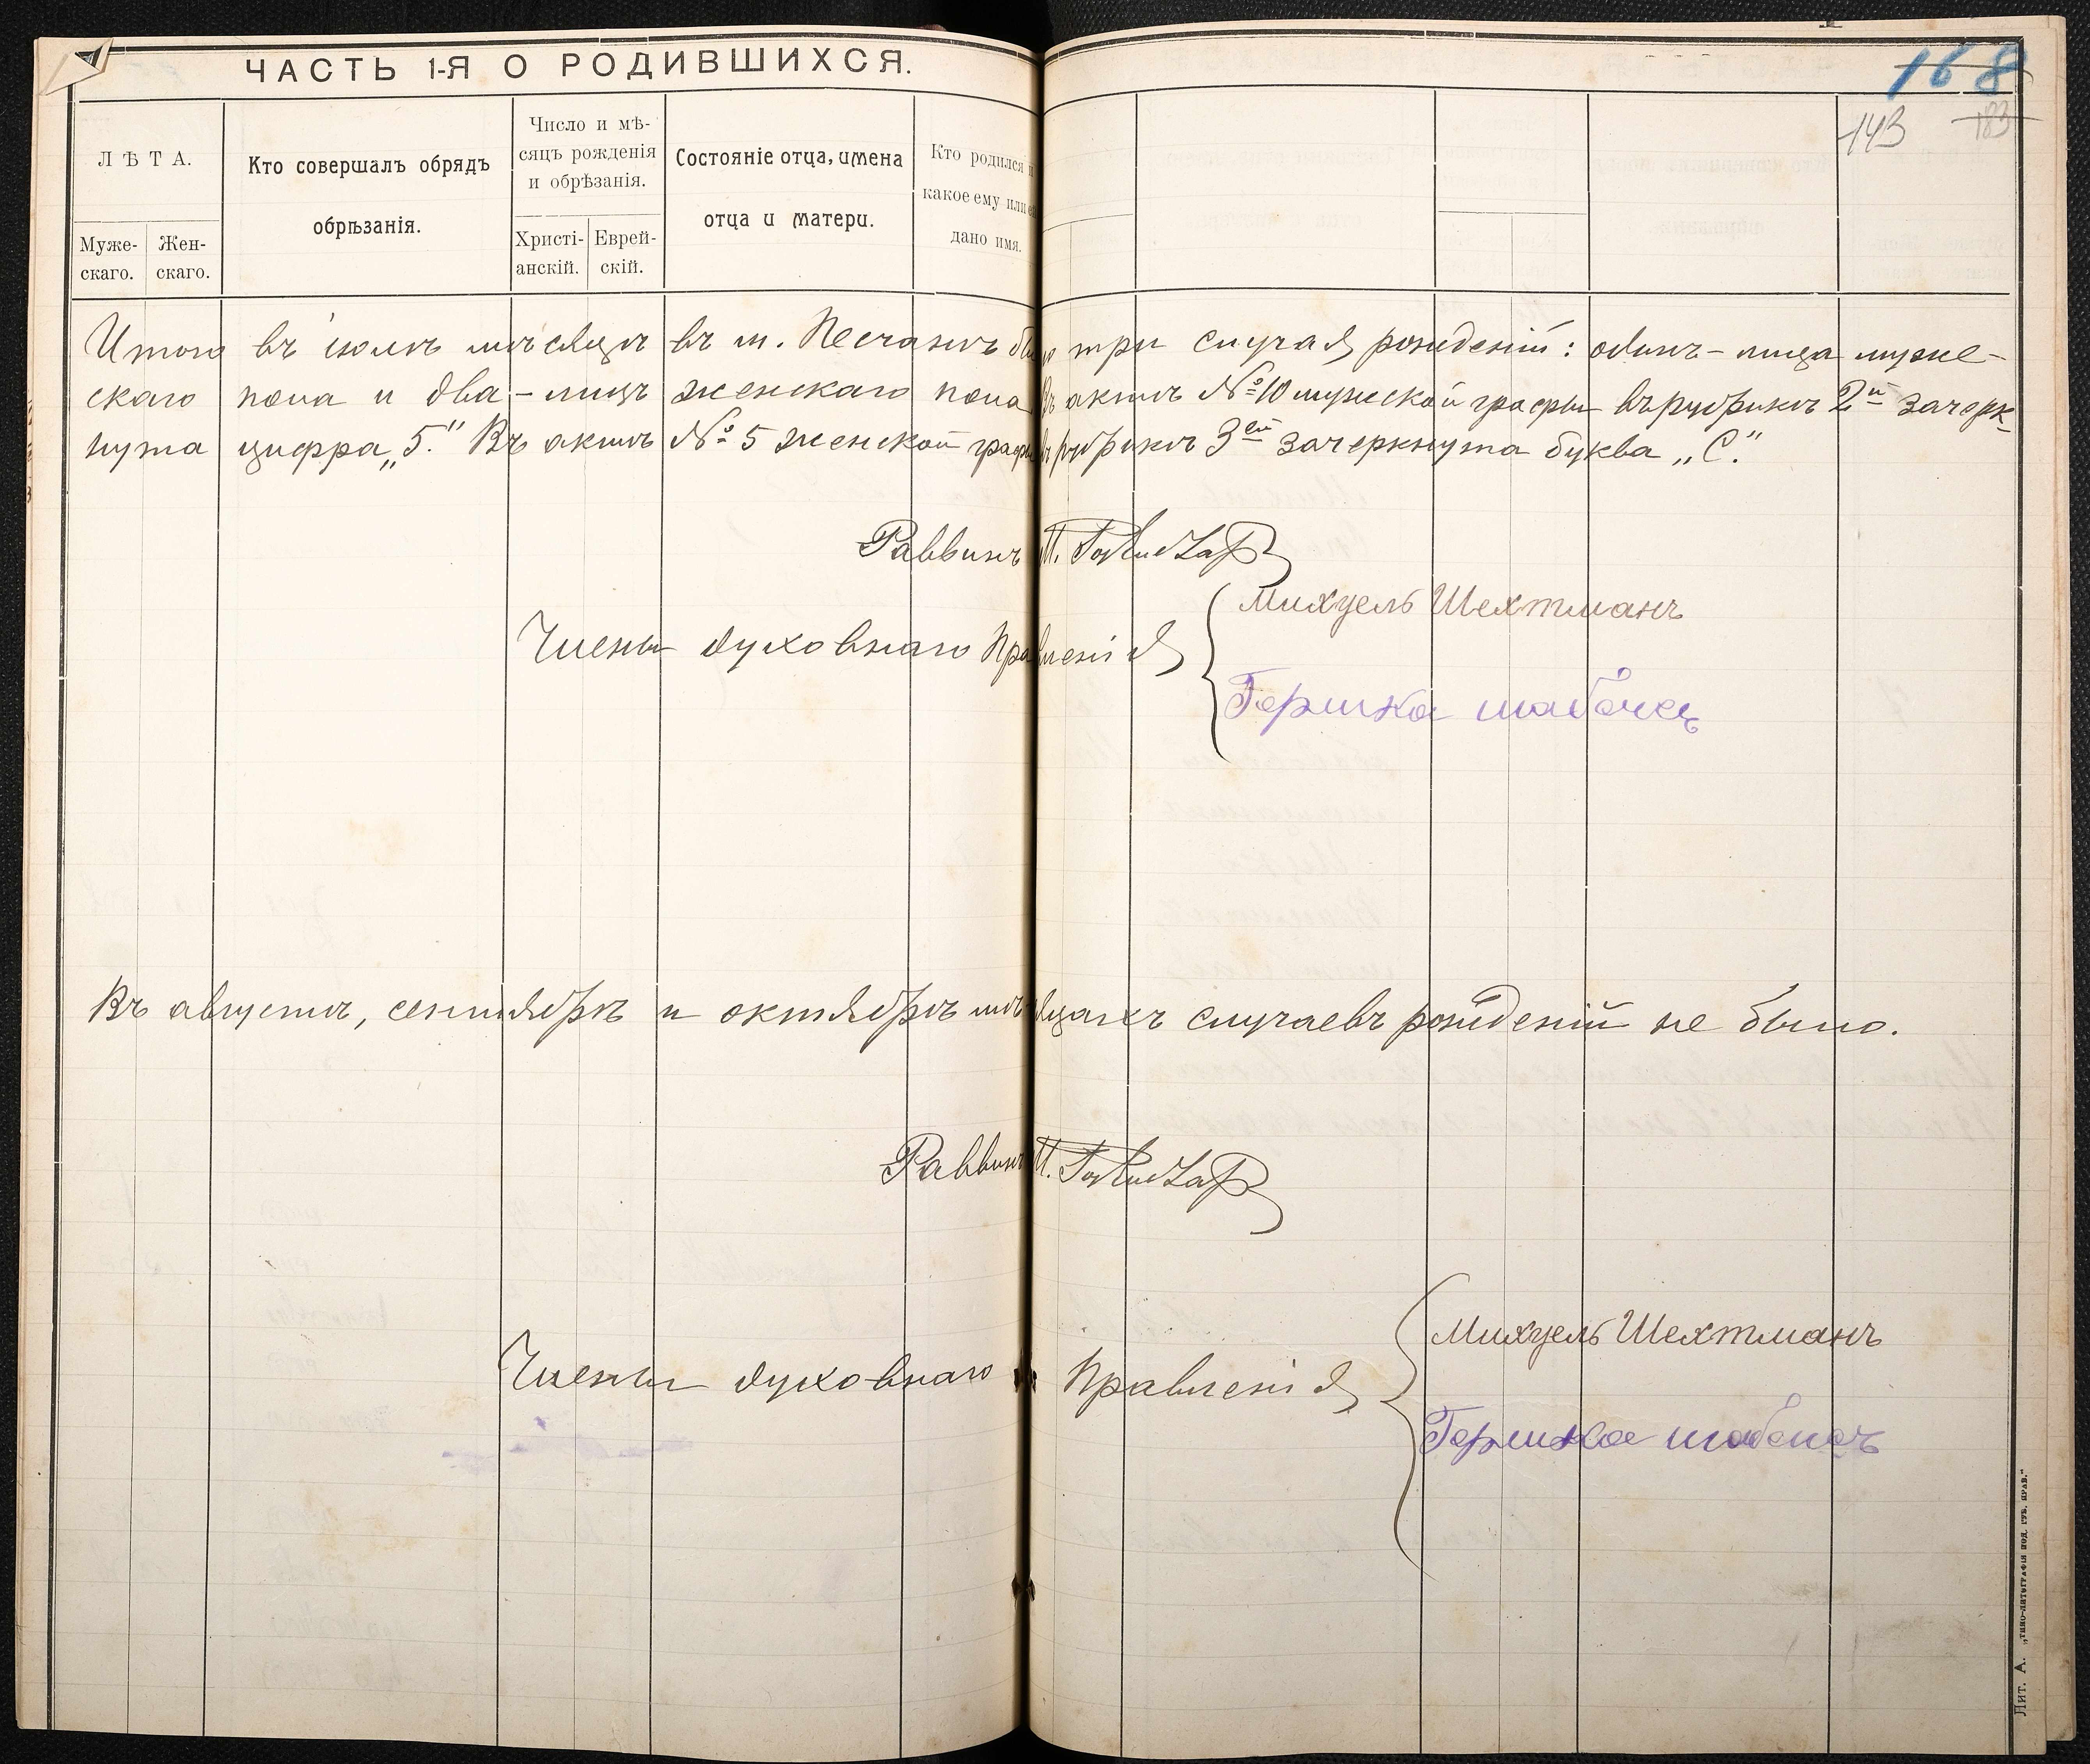 ЧАСТЬ 1-Я О РОДИВШИХСЯ.
168
143 183
ЛѢТА.
Муже-
скаго.
Жен-
скаго.
Кто совершалъ обрядъ
обрѣзанія.
Число и мѣ-
сяцъ рожденія
и обрѣзанія.
Христі-
анскій.
Еврей-
скій.
Состояніе отца, имена
отца и матери.
Кто родился и
какое ему или ей
дано имя.
Итого въ іюлѣ мѣсяцѣ въ м. Песчанѣ было три случая рожденій: одинъ - лица муже-
скаго пола и два - лицъ женскаго пола Въ актѣ № 10 мужской графы въ рубрикѣ 2й зачерк-
нута цифра „5." Въ актѣ № 5 женской графы въ рубрикѣ 3ей зачеркнута буква „С."
Раввинъ М.
Члены духовнаго Правленія
Михуель Шехтманъ
Гершко
Въ августѣ, сентябрѣ и октябрѣ мѣсяцахъ случаевъ рожденій не было.
Раввинъ М.
Члены духовнаго Правленія
Михуель Шехтманъ
Гершко
Лит. А. „Типо-литографія под. губ. прав."